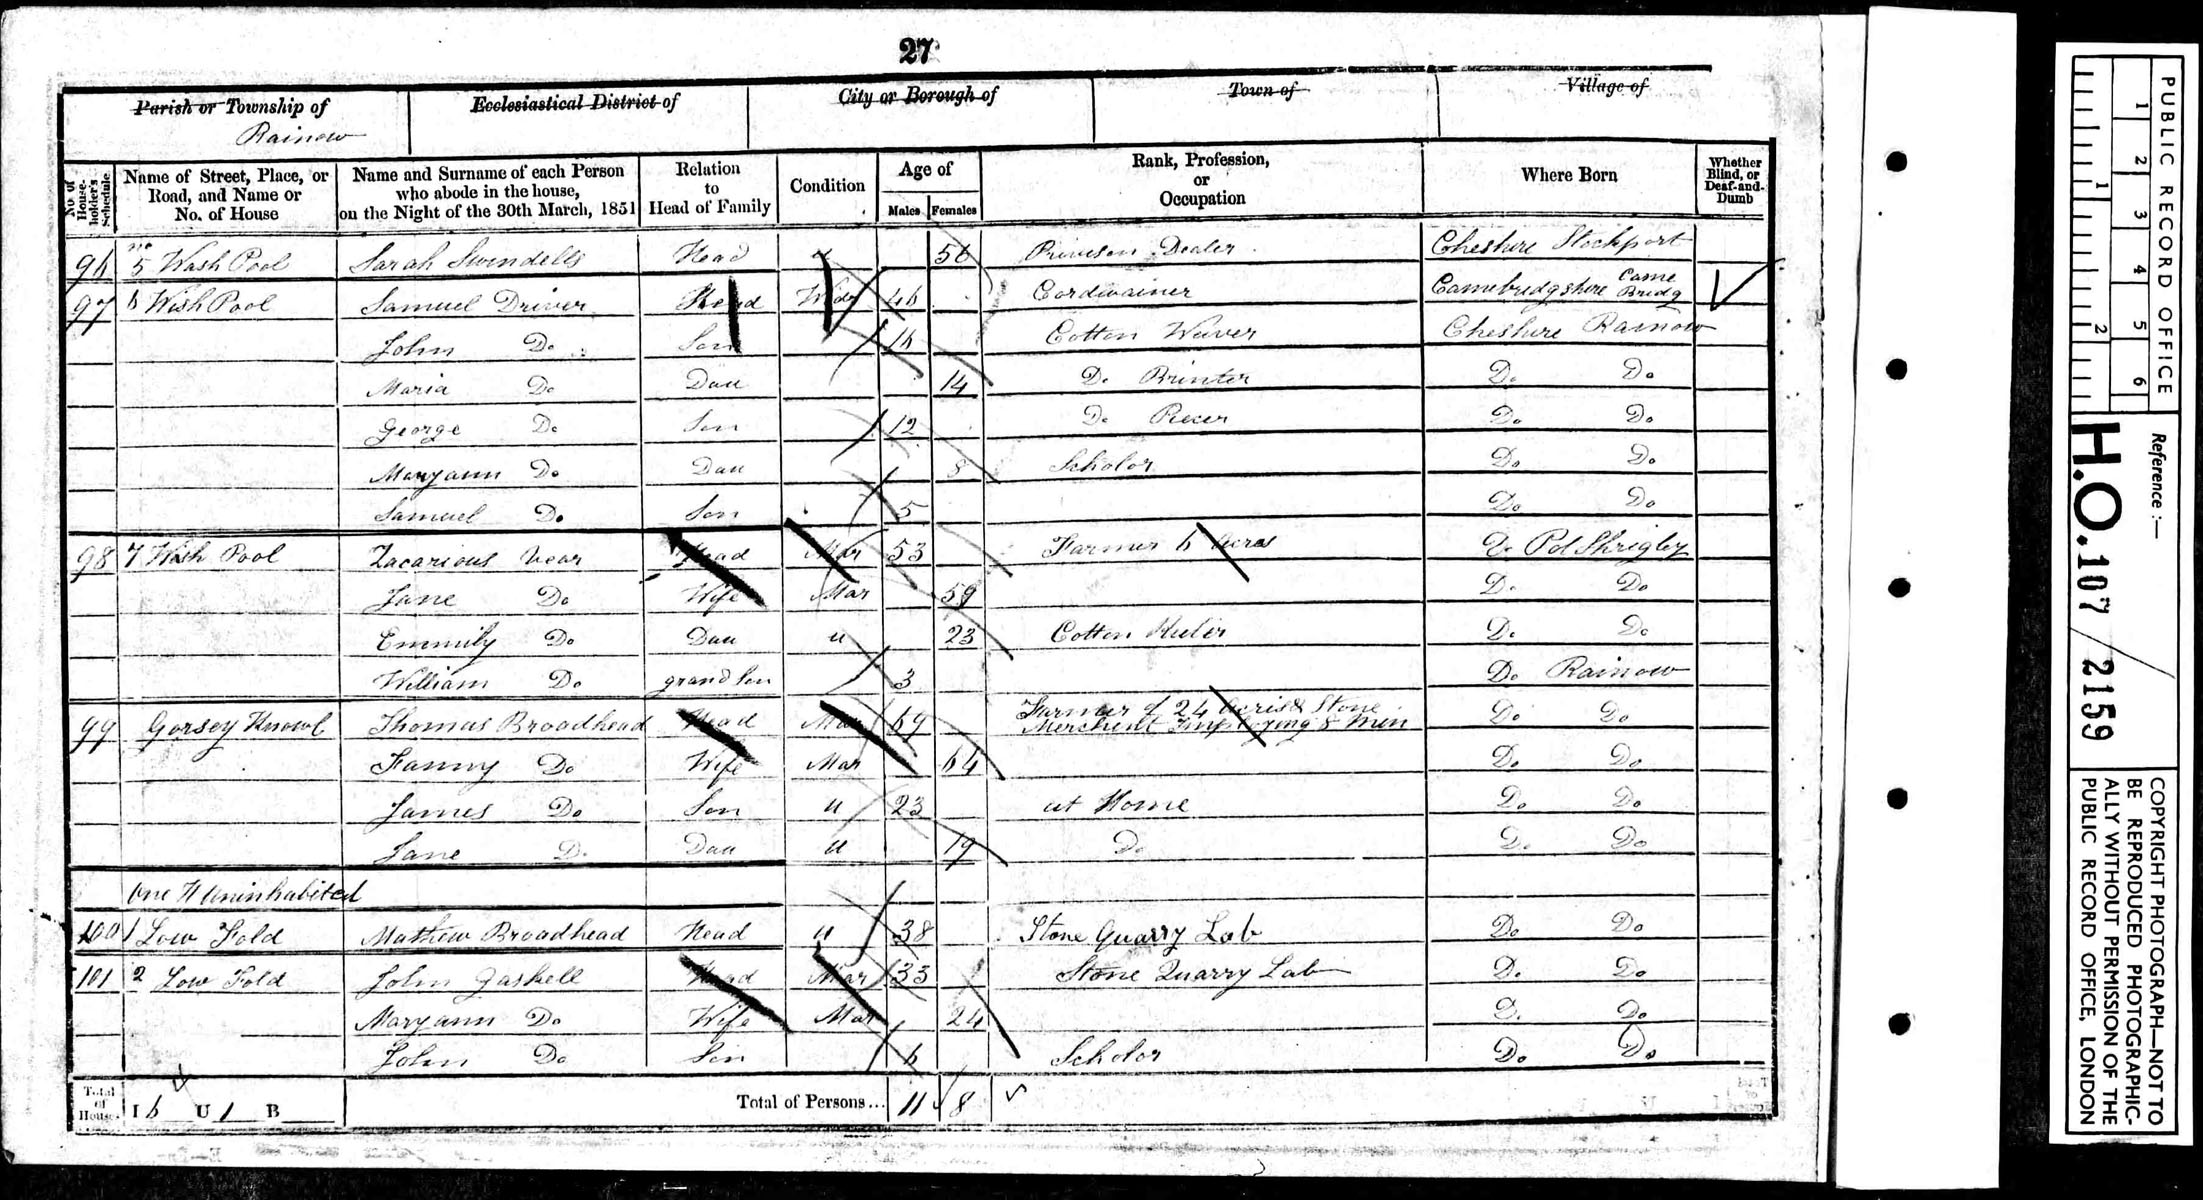 27
Parish or Township of
Rainow
Ecclesiastical District of
City or Borough of
Town of
Village of
No. of House-holder's Schedule
Name of Street, Place, or Road, and Name or No. of House
Name and Surname of each Person who abode in the house, on the Night of the 30th March, 1851
Relation to Head of Family
Condition
Age of
Males Females
Rank, Profession, or Occupation
Where Born
Whether Blind, or Deaf-and-Dumb
96 no 5 Wash Pool Sarah Swindells Head 56 Dealer Cheshire Stockport
97 6 Wash Pool Samuel Driver Head Widr 46 Cordwainer Camebridgshire Came Bridg
John Do Son 16 Cotton Wever Cheshire Rainow
Maria Do Dau 14 Do Printer Do Do
George Do Son 12 Do Piecer Do Do
Maryann Do Dau 8 Scholor Do Do
Samuel Do Son 5 Do Do
98 7 Wash Pool Zacarious Head Mar 53 Farmer 6 Acres Do Pot Shrigley
Jane Do Wife Mar 59 Do Do
Emmily Do Dau u 23 Cotton Do Do
William Do grand Son 3 Do Rainow
99 Gorsey Knowl Thomas Broadhead Head Mar 69 Farmer of 24 Acris & Stone Merchent Imploying 8 Men Do Do
Fanny Do Wife Mar 64 Do Do
James Do Son u 23 at Home Do Do
Jane Do Dau u 19 Do Do Do
One H Uninhabited
100 1 Low Fold Mathew Broadhead Head u 38 Stone Quarry Lab Do Do
101 2 Low Fold John Gaskell Head Mar 33 Stone Quarry Lab Do Do
Maryann Do Wife Mar 24 Do Do
John Do Son 6 Scholor Do Do
Total of Houses I 6 4 U 1 B Total of Persons... 11 8
PUBLIC RECORD OFFICE
1 2 3 4 5 6
1 2
Reference :—
H.O. 107 / 2159
COPYRIGHT PHOTOGRAPH—NOT TO
BE REPRODUCED PHOTOGRAPHIC-
ALLY WITHOUT PERMISSION OF THE
PUBLIC RECORD OFFICE, LONDON